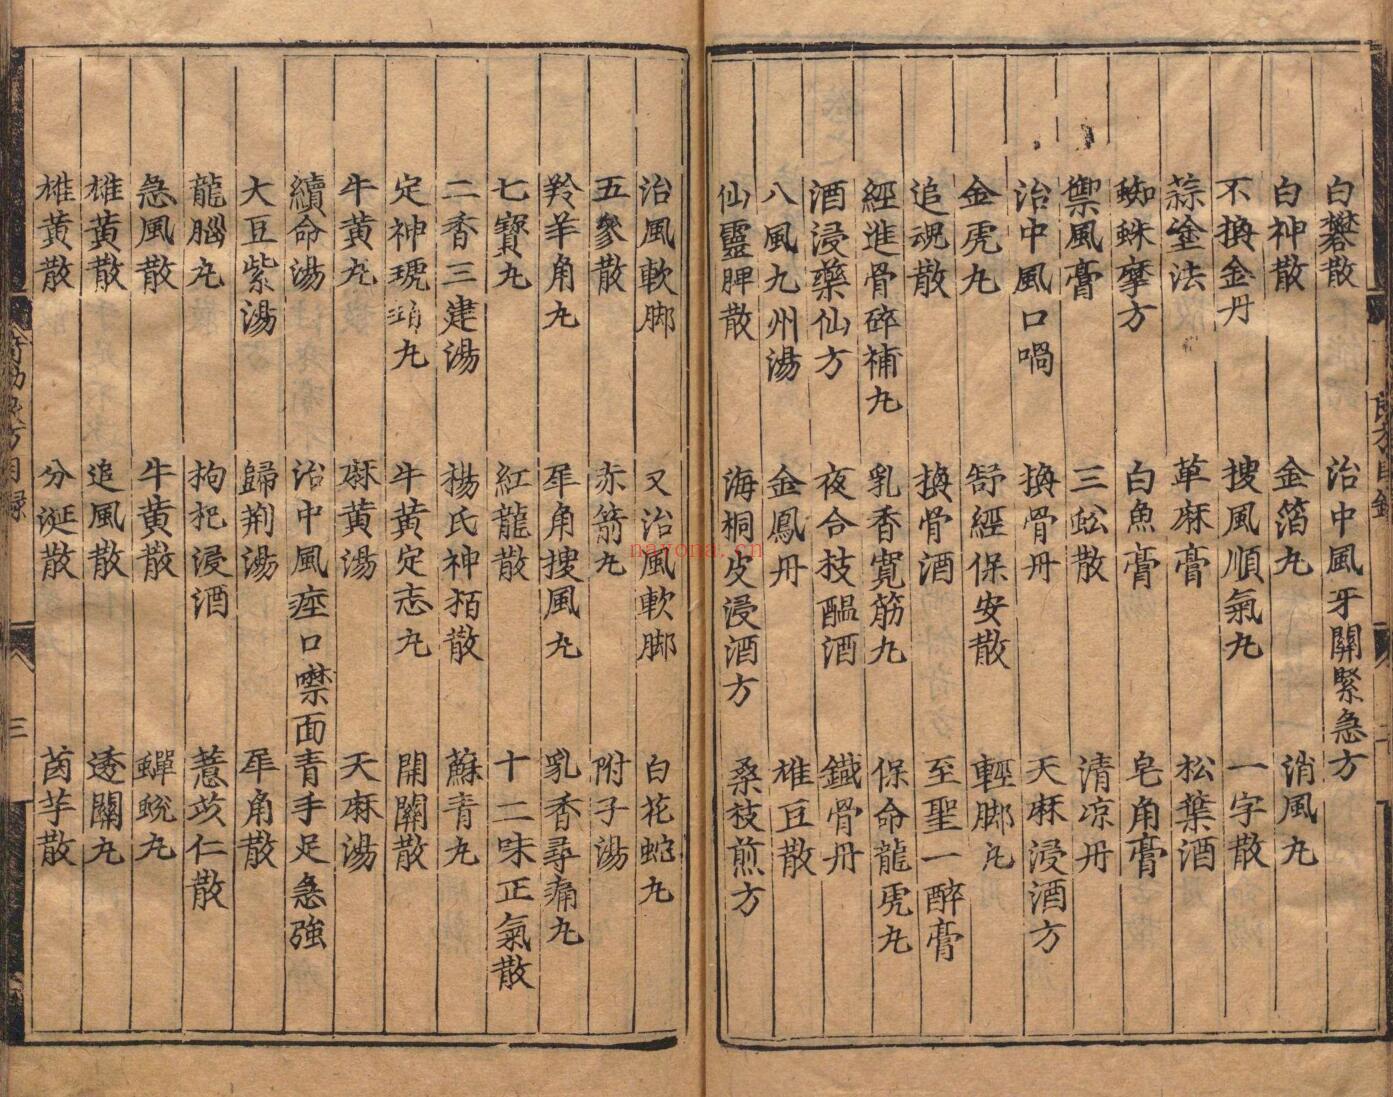 白礬散　治中風牙關緊急方
白神散　金箔丸　消風丸
不換金丹　搜風順氣丸　一字散
蒜金法　草麻膏　松葉酒
蜘蛛摩方　白魚膏　皂角膏
禦風膏　三蚣散　清凉丹
治中風口喎　換骨丹　天麻浸酒方
金虎丸　舒經保安散　輕脚丸
追魂散　換骨酒　至聖一醉膏
經進骨碎補丸　乳香寛筋丸　保命龍虎丸
酒浸藥仙方　夜合枝醖酒　鐵骨丹
八風九州湯　金鳳丹　雄豆散
仙靈脾散　海桐皮浸酒方　桑枝煎方
治風軟脚　又治風軟脚　白花蛇丸
五參散　赤箭丸　附子湯
羚羊角丸　犀角搜風丸　乳香尋痛丸
七寶丸　紅龍散　十二味正氣散
二香三建湯　楊氏神栢散　蘇青丸
定神琥珀丸　牛黄定志丸　開關散
牛黄丸　麻黄湯　天麻湯
續命湯　治中風痙口噤面青手足急強
大豆紫湯　歸荆湯　犀角散
龍腦丸　枸杞浸酒　薏苡仁散
急風散　牛黄散　蟬蛻丸
雄黄散　追風散　透關丸
雄黄散　分涎散　茵芋散
三
nayona.cn